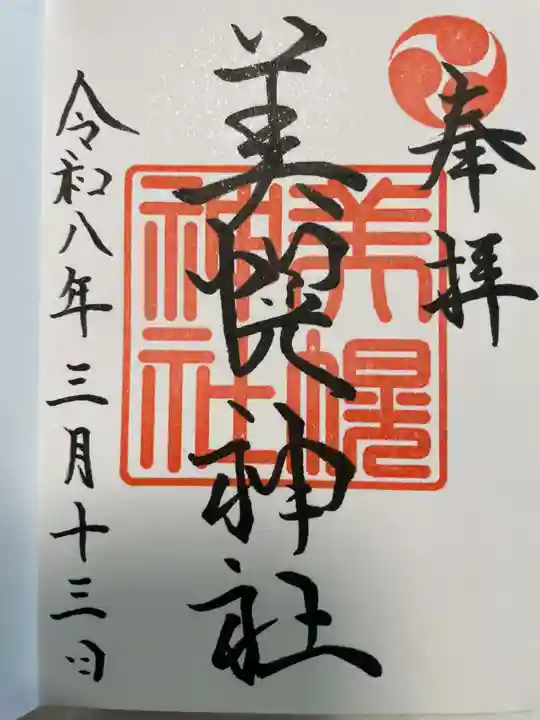 奉拝
美幌神社
美幌
神社
令和八年三月十三日